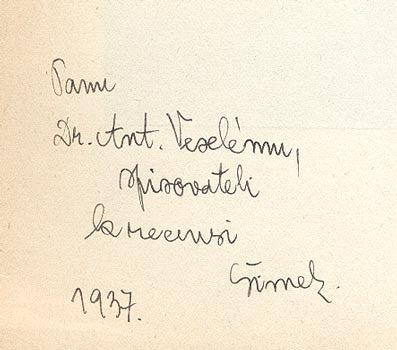 Panu
Dr. Ant. Veselému,
spisovateli
k recensi
Šimek.
1937.